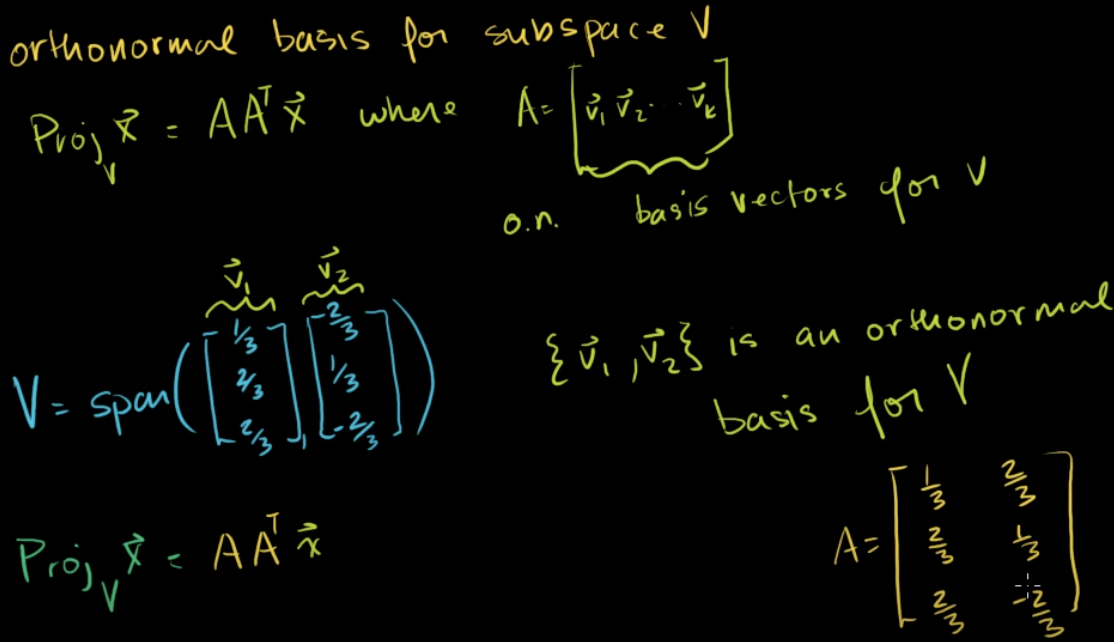 orthonormal basis for subspace V
Proj_V x⃗ = AAᵀx⃗ where A = [v⃗₁ v⃗₂ ... v⃗ₖ]
o.n. basis vectors for V
v⃗₁ v⃗₂
V = span([1/3 2/3 2/3], [2/3 1/3 -2/3])
{v⃗₁, v⃗₂} is an orthonormal
basis for V
Proj_V x⃗ = AAᵀx⃗
A = [1/3 2/3
2/3 1/3
2/3 -2/3]